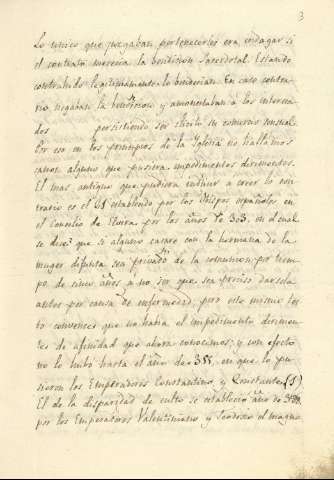 3
Lo unico que juzgaban pertenecerles era indagar si
el contrato merecia la bendicion Sacerdotal. Estando
contrahido legitimamente lo bendecian. En caso contra-
rio negaban la bendicion y amonestaban a los interesa
dos persistiendo ser ilicito su comercio
Por eso en los principios de la Iglesia no hallamos
canon alguno que pusiera impedimentos dirimentes.
El mas antiguo que pudiera inducir a creer lo con-
trario es el 61 establecido por los Obispos españoles en
el Concilio de Elvira por los años de 303. en el cual
se dice que si alguno casare con la hermana de la
muger difunta sea privado de la comunion por tiem-
po de cinco años a no ser que sea preciso darsela
antes por causa de enfermedad, pero esto mismo tex
to convence que no habia el impedimento dirimen-
te de afinidad que ahora conocemos; y con efecto
no lo hubo hasta el año de 355, en que lo pu-
sieron los Emperadores Constantino y Constante (1)
El de la disparidad de culto se estableció año de
por los Emperadores Valentiniano y Teodosio el magno